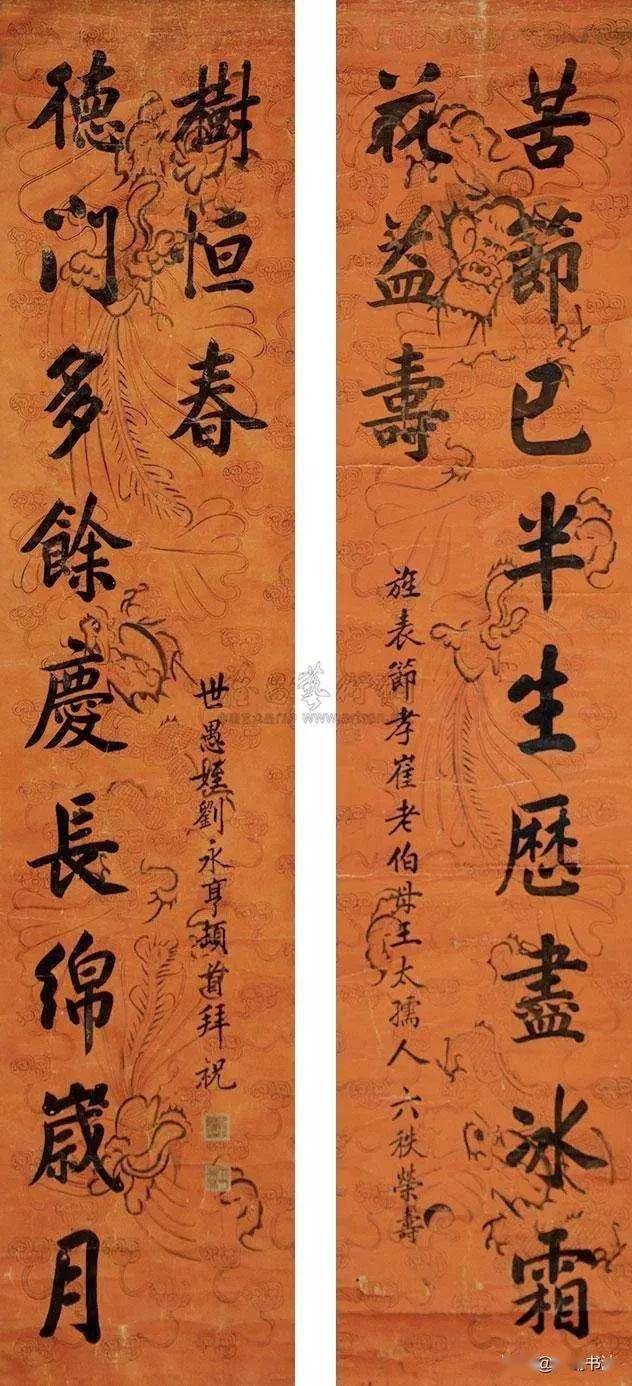 苦節已半生歷盡冰霜
萱益壽
旌表節孝崔老伯母王太孺人六秩榮壽
德門多餘慶長綿歲月
樹恒春
世愚姪劉永亨頓首拜祝
www.artron.net
@
书法